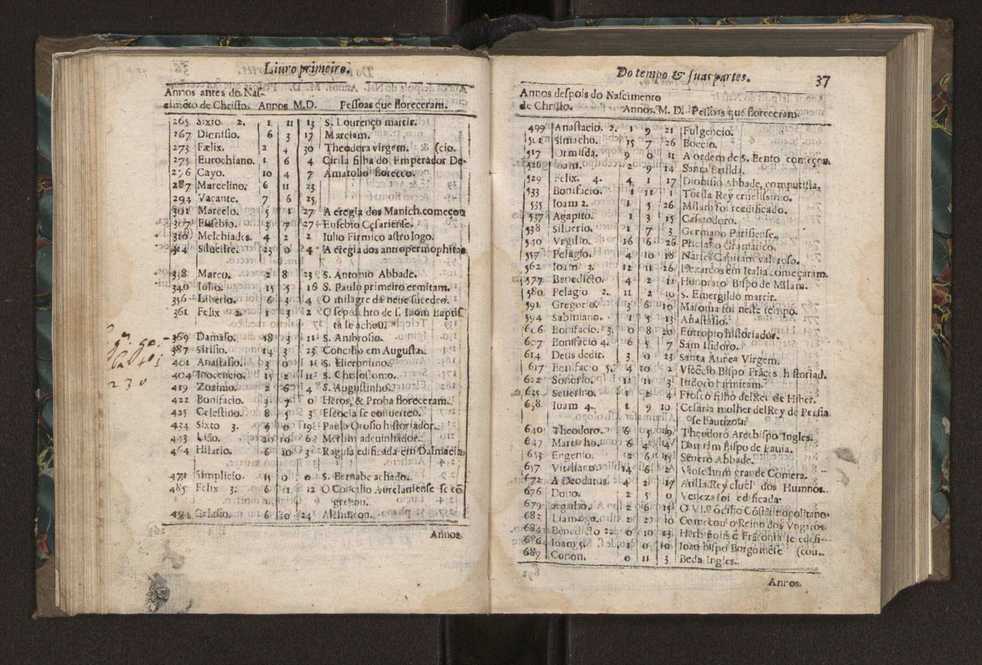 Liuro primeiro.
Annos antes do Nas-
cimẽto de Christo. Annos M.D. Pessoas que floreceram.
265 Sixto 2. 1 11 13 S. Lourenço martir.
267 Dionisio. 6 3 17 Marciam.
273 Fælix. 2 4 30 Theodora virgem. (cio.
275 Eurochiano. 1 6 4 Cirila filha do Emperador De-
Cayo. 10 4 7 Amatolio florecco.
287 Marcelino. 6 11 23
294 Vacante. 7 6 25
301 Marcelo. 5 1 27 A eregia dos Manich.começou
307 Eusebio. 7 27 Eusebio Cesariense.
310 Melchiades. 4 2 2 Iulio Firmico astrologo.
314 Silueltre. 23 0 4 A eregia dos antropermophitas
318 Marco. 2 8 23 S. Antonio Abbade.
340 Iulio. 15 5 16 S. Paulo primeiro ermitam.
356 Liberio. 6 3 4 O milagre da neue sucedeo.
361 Felix 2. 1 2 O sepulchro de S. Ioam Baptis
ta se achou.
369 Damaso. 18 3 11 S. Ambrosio.
387 Sirisio. 14 3 25 Concilio em Augusta.
401 Anastasio. 3 0 S. Hieronimo.
404 Inocencio. 15 2 S. Chrisostomo.
419 Zozimo. 2 6 S. Augustinho.
422 Bonifacio. 3 7 0 Heros, & Proba floreceram.
425 Celestino. 8 5 3 Escocia se conuerteo.
434 Sixto 3. 0 19 Paulo Orosio historiador.
443 Lião. 20 10 Merlim adeuinhador.
464 Hilario. 6 10 Ragusa edificada em Dalmacia
471 Simplicio. 15 0 0 S. Bernabe achado.
485 Felix 3. 6 11 12 O Concilio Aurelaniense se cõ
gregou.
494 Gelasio. 6 10 24 Alchincon.
Annos
Do tempo & suas partes. 37
Annos despois do Nascimento
de Christo. Annos. M. D. Pessoas que floreceram.
499 Anastacio. 2. 1 9 21 Fulgencio.
Simacho. 15 7 26 Boecio.
517 Ormisda. 9 0 11 A ordem de S. Bento começou
526 Ioam. 2 9 14 Santa Brisida.
529 Felix. 4. 4 1 17 Dionisio Abbade, computista.
533 Bonifacio. 1 11 1 Totila Rey cruelissimo.
535 Ioam 2. 1 5 26 Milam foi reedificado.
537 Agapito. 1 3 15 Casiodoro.
538 Siluerio. 1 7 3 Germano Parisiense.
540 Vrgilio. 16 6 26 Prisciano Gramatico.
557 Pelagio. 4 10 18 Narses Capitam valeroso.
562 Ioam 3. 12 11 26 em Italia começaram.
577 Benedicto. 4 2 Honorato Bispo de Milam.
580 Pelagio 2. 11 2 10 S. Emergildo martir.
591 Gregorio. 3 6 10 Mafoma foi neste tempo.
594 Sabiniano. 1 5 13 Anastasio.
606 Bonifacio. 3 0 8 20 Eutropio historiador.
607 Bonifacio 4. 6 5 7 Sam Isidoro.
614 Deus dedit. 3 0 23 Santa Aurea Virgem.
617 Bonifacio 5. 4 10 2 Bispo historiad.
622 Honorio. 11 11 3
625 Seuerino. 1 2 4 filho delRei de Hiber.
638 Ioam 4. 1 9 10 Cesaria molher del Rey de Persia
se bautizou
640 Theodoro. 6 5 Theodoro Arcebispo Ingles.
647 Martinho. 6 4 Bispo de Pauia.
653 Eugenio. 12 6 Seuero Abbade.
657 Vitaliano. 14 6 2
672 A Deodatus. 4 2 17 Atilla Rey cruel dos Hunnos.
676 Dono. 2 5 0 Veneza foi edificada
679 Agatho. 2 6 15 O VI. Cõstãtinopolitano.
682 Liam 2. 10 Começou o Reino dos Vngiros
684 Benedicto 2. 0 10 23 Herbipolis é Frãconia se edifi-
686 Ioam 5. 1 0 10 Ioam Bispo (cou..
687 Conon. 0 11 3 Beda Ingles.
Annos.